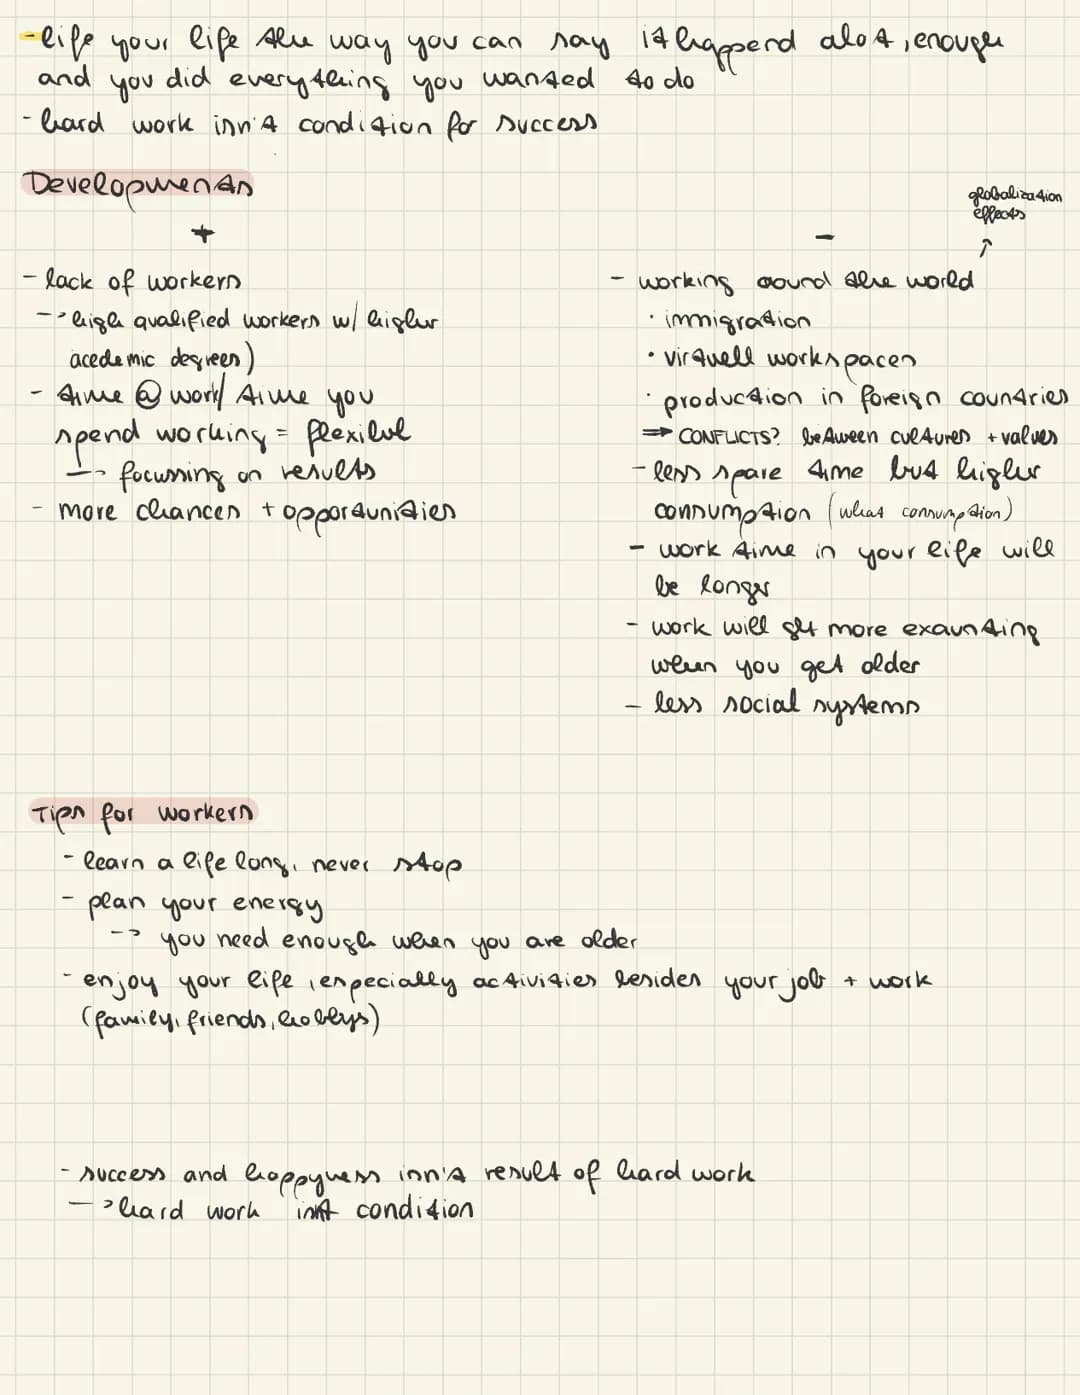 - life your life the way you can say it happend alot, enough
and you did everything you wanted to do
- hard work isn't condition for success
Developments
globalization
effects
+
- lack of workers
-> high qualified workers w/ higher
acedemic degrees)
- time @ work/ time you
spend working = flexibel
-> focussing on results
- more chances + opportunities
-
- working aound the world
· immigration
· virtuell workspaces
· production in foreign countries
=> CONFLICTS? between cultures + values
- less spare time but higher
consumption (what consumption)
- work time in your life will
be longer
- work will get more exausting
when you get older
- less social systems
Tips for workers
- learn a life long, never stop
- plan your energy
--> you need enough when you are older
- enjoy your life, especially activities besides your job + work
(family, friends, hobbys)
- success and happyness isn't result of hard work
-> hard work isnt condition